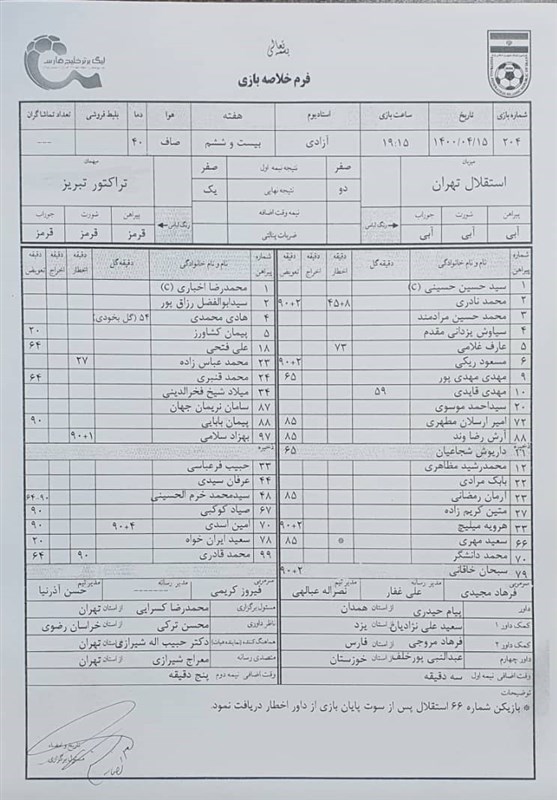 بسمه تعالی
لیگ برتر خلیج فارس
فرم خلاصه بازی
شماره بازی تاریخ ساعت بازی استادیوم هفته هوا دما بلیط فروشی تعداد تماشاگران
۲۰۴ ۱۴۰۰/۰۴/۱۵ ۱۹:۱۵ آزادی بیست و ششم صاف ۴۰ ---
میزبان استقلال تهران صفر نتیجه نیمه اول صفر مهمان تراکتور تبریز
دو نتیجه نهایی یک
پیراهن شورت جوراب رنگ لباس نیمه وقت اضافه رنگ لباس پیراهن شورت جوراب
آبی آبی آبی ضربات پنالتی قرمز قرمز قرمز
شماره پیراهن نام و نام خانوادگی دقیقه گل دقیقه اخطار دقیقه اخراج دقیقه تعویض شماره پیراهن نام و نام خانوادگی دقیقه گل دقیقه اخطار دقیقه اخراج دقیقه تعویض
۱ سید حسین حسینی (C) ۱ محمدرضا اخباری (C)
۲ محمد نادری ۴۵+۸ ۹۰+۲ ۲ سیدابوالفضل رزاق پور
۳ محمد حسین مرادمند ۴ هادی محمدی ۵۴ (گل بخودی)
۴ سیاوش یزدانی مقدم ۵ پیمان کشاورز ۲۰
۵ عارف غلامی ۷۳ ۱۸ علی فتحی ۶۴
۶ مسعود ریگی ۹۰+۲ ۲۳ محمد عباس زاده ۲۷
۹ مهدی مهدی پور ۶۵ ۲۴ محمد قنبری ۶۴
۱۰ مهدی قایدی ۵۹ ۳۴ میلاد شیخ فخرالدینی
۲۰ سیداحمد موسوی ۸۷ سامان نریمان جهان
۷۲ امیر ارسلان مطهری ۸۵ ۸۸ پیمان بابایی ۹۰
۸۸ آرش رضا وند ۸۵ ۹۷ بهزاد سلامی ۹۰+۱
ذخیره داریوش شجاعیان ۶۵ ذخیره
۱۲ محمدرشید مظاهری ۳۳ حبیب فرعباسی
۲۲ بابک مرادی ۴۴ عرفان سیدی
۲۳ آرمان رمضانی ۸۵ ۴۸ سیدمحمد خرم الحسینی ۶۴-۹۰
۲۷ متین کریم زاده ۶۷ صیاد کوکبی ۹۰
۳۳ هرویه میلیچ ۹۰+۲ ۷۰ امین اسدی ۹۰+۴ ۹۰
۶۶ سعید مهری * ۸۵ ۷۸ سعید ایران خواه ۲۰
۷۰ محمد دانشگر ۹۹ محمد قادری ۹۰ ۶۴
۷۹ سبحان خاقانی ۹۰+۲
سرمربی فرهاد مجیدی مدیر رسانه علی غفار مدیر تیم نصراله عبدالهی سرمربی فیروز کریمی مدیر رسانه --- مدیر تیم حسن آذرنیا
داور پیام حیدری از استان همدان مسئول برگزاری محمدرضا کسرایی از استان تهران
کمک داور ۱ سعید علی نژادیان از استان یزد ناظر داوری محسن ترکی از استان خراسان رضوی
کمک داور ۲ فرهاد مروجی از استان فارس هماهنگ کننده (نماینده هیات) دکتر حبیب اله شیرازی از استان تهران
داور چهارم عبدالنبی پورخلف از استان خوزستان متصدی رسانه معراج شیرازی از استان تهران
وقت اضافی نیمه اول سه دقیقه وقت اضافی نیمه دوم پنج دقیقه
توضیحات
* بازیکن شماره ۶۶ استقلال پس از سوت پایان بازی از داور اخطار دریافت نمود.
تاریخ و امضاء
مسئول برگزاری